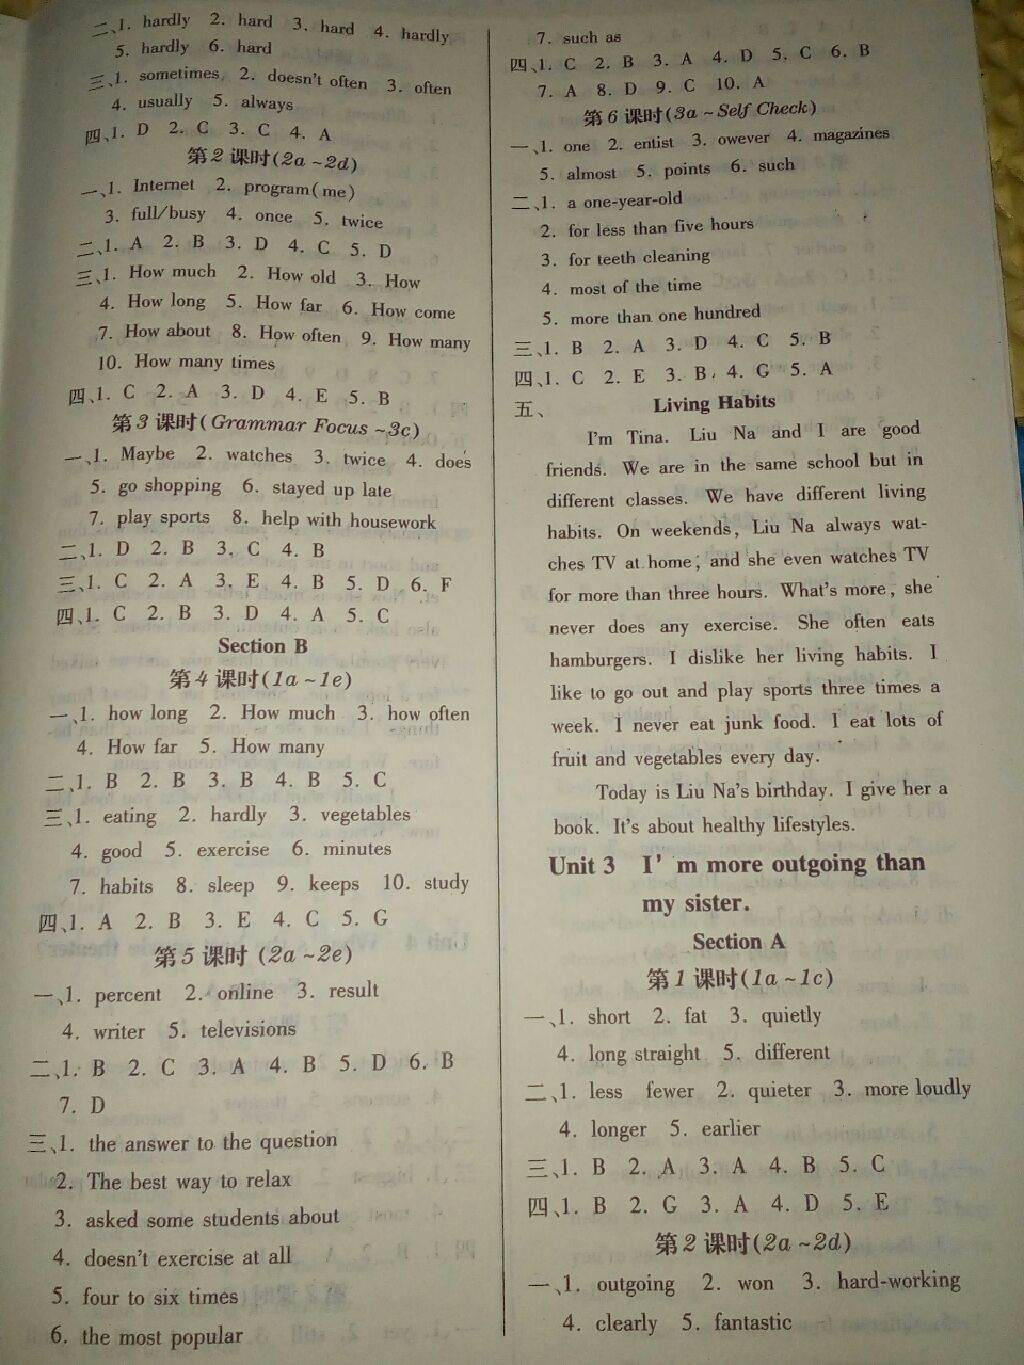 二、1. hardly 2. hard 3. hard 4. hardly
5. hardly 6. hard
三、1. sometimes 2. doesn't often 3. often
4. usually 5. always
四、1. D 2. C 3. C 4. A
第2课时(2a~2d)
一、1. Internet 2. program(me)
3. full/busy 4. once 5. twice
二、1. A 2. B 3. D 4. C 5. D
三、1. How much 2. How old 3. How
4. How long 5. How far 6. How come
7. How about 8. How often 9. How many
10. How many times
四、1. C 2. A 3. D 4. E 5. B
第3课时(Grammar Focus~3c)
一、1. Maybe 2. watches 3. twice 4. does
5. go shopping 6. stayed up late
7. play sports 8. help with housework
二、1. D 2. B 3. C 4. B
三、1. C 2. A 3. E 4. B 5. D 6. F
四、1. C 2. B 3. D 4. A 5. C
Section B
第4课时(1a~1e)
一、1. how long 2. How much 3. how often
4. How far 5. How many
二、1. B 2. B 3. B 4. B 5. C
三、1. eating 2. hardly 3. vegetables
4. good 5. exercise 6. minutes
7. habits 8. sleep 9. keeps 10. study
四、1. A 2. B 3. E 4. C 5. G
第5课时(2a~2e)
一、1. percent 2. online 3. result
4. writer 5. televisions
二、1. B 2. C 3. A 4. B 5. D 6. B
7. D
三、1. the answer to the question
2. The best way to relax
3. asked some students about
4. doesn't exercise at all
5. four to six times
6. the most popular
7. such as
四、1. C 2. B 3. A 4. D 5. C 6. B
7. A 8. D 9. C 10. A
第6课时(3a~Self Check)
一、1. one 2. entist 3. owever 4. magazines
5. almost 5. points 6. such
二、1. a one-year-old
2. for less than five hours
3. for teeth cleaning
4. most of the time
5. more than one hundred
三、1. B 2. A 3. D 4. C 5. B
四、1. C 2. E 3. B 4. G 5. A
五、 Living Habits
I'm Tina. Liu Na and I are good
friends. We are in the same school but in
different classes. We have different living
habits. On weekends, Liu Na always wat-
ches TV at home, and she even watches TV
for more than three hours. What's more, she
never does any exercise. She often eats
hamburgers. I dislike her living habits. I
like to go out and play sports three times a
week. I never eat junk food. I eat lots of
fruit and vegetables every day.
Today is Liu Na's birthday. I give her a
book. It's about healthy lifestyles.
Unit 3 I'm more outgoing than
my sister.
Section A
第1课时(1a~1c)
一、1. short 2. fat 3. quietly
4. long straight 5. different
二、1. less fewer 2. quieter 3. more loudly
4. longer 5. earlier
三、1. B 2. A 3. A 4. B 5. C
四、1. B 2. G 3. A 4. D 5. E
第2课时(2a~2d)
一、1. outgoing 2. won 3. hard-working
4. clearly 5. fantastic